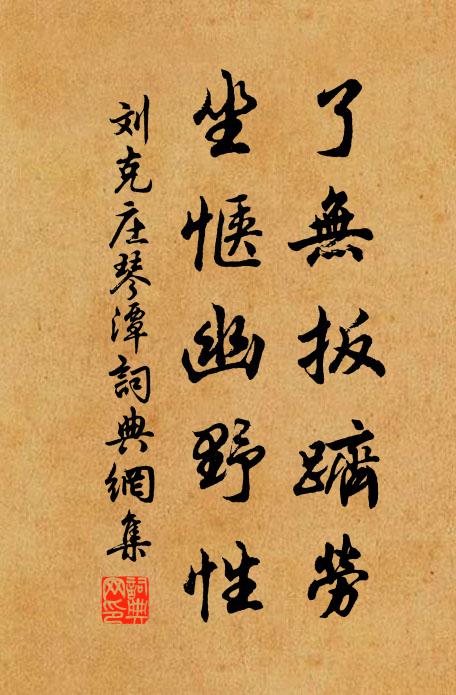 了無扳躋勞
坐愜幽野性
刘克庄琴潭詞典網集
詞典网印